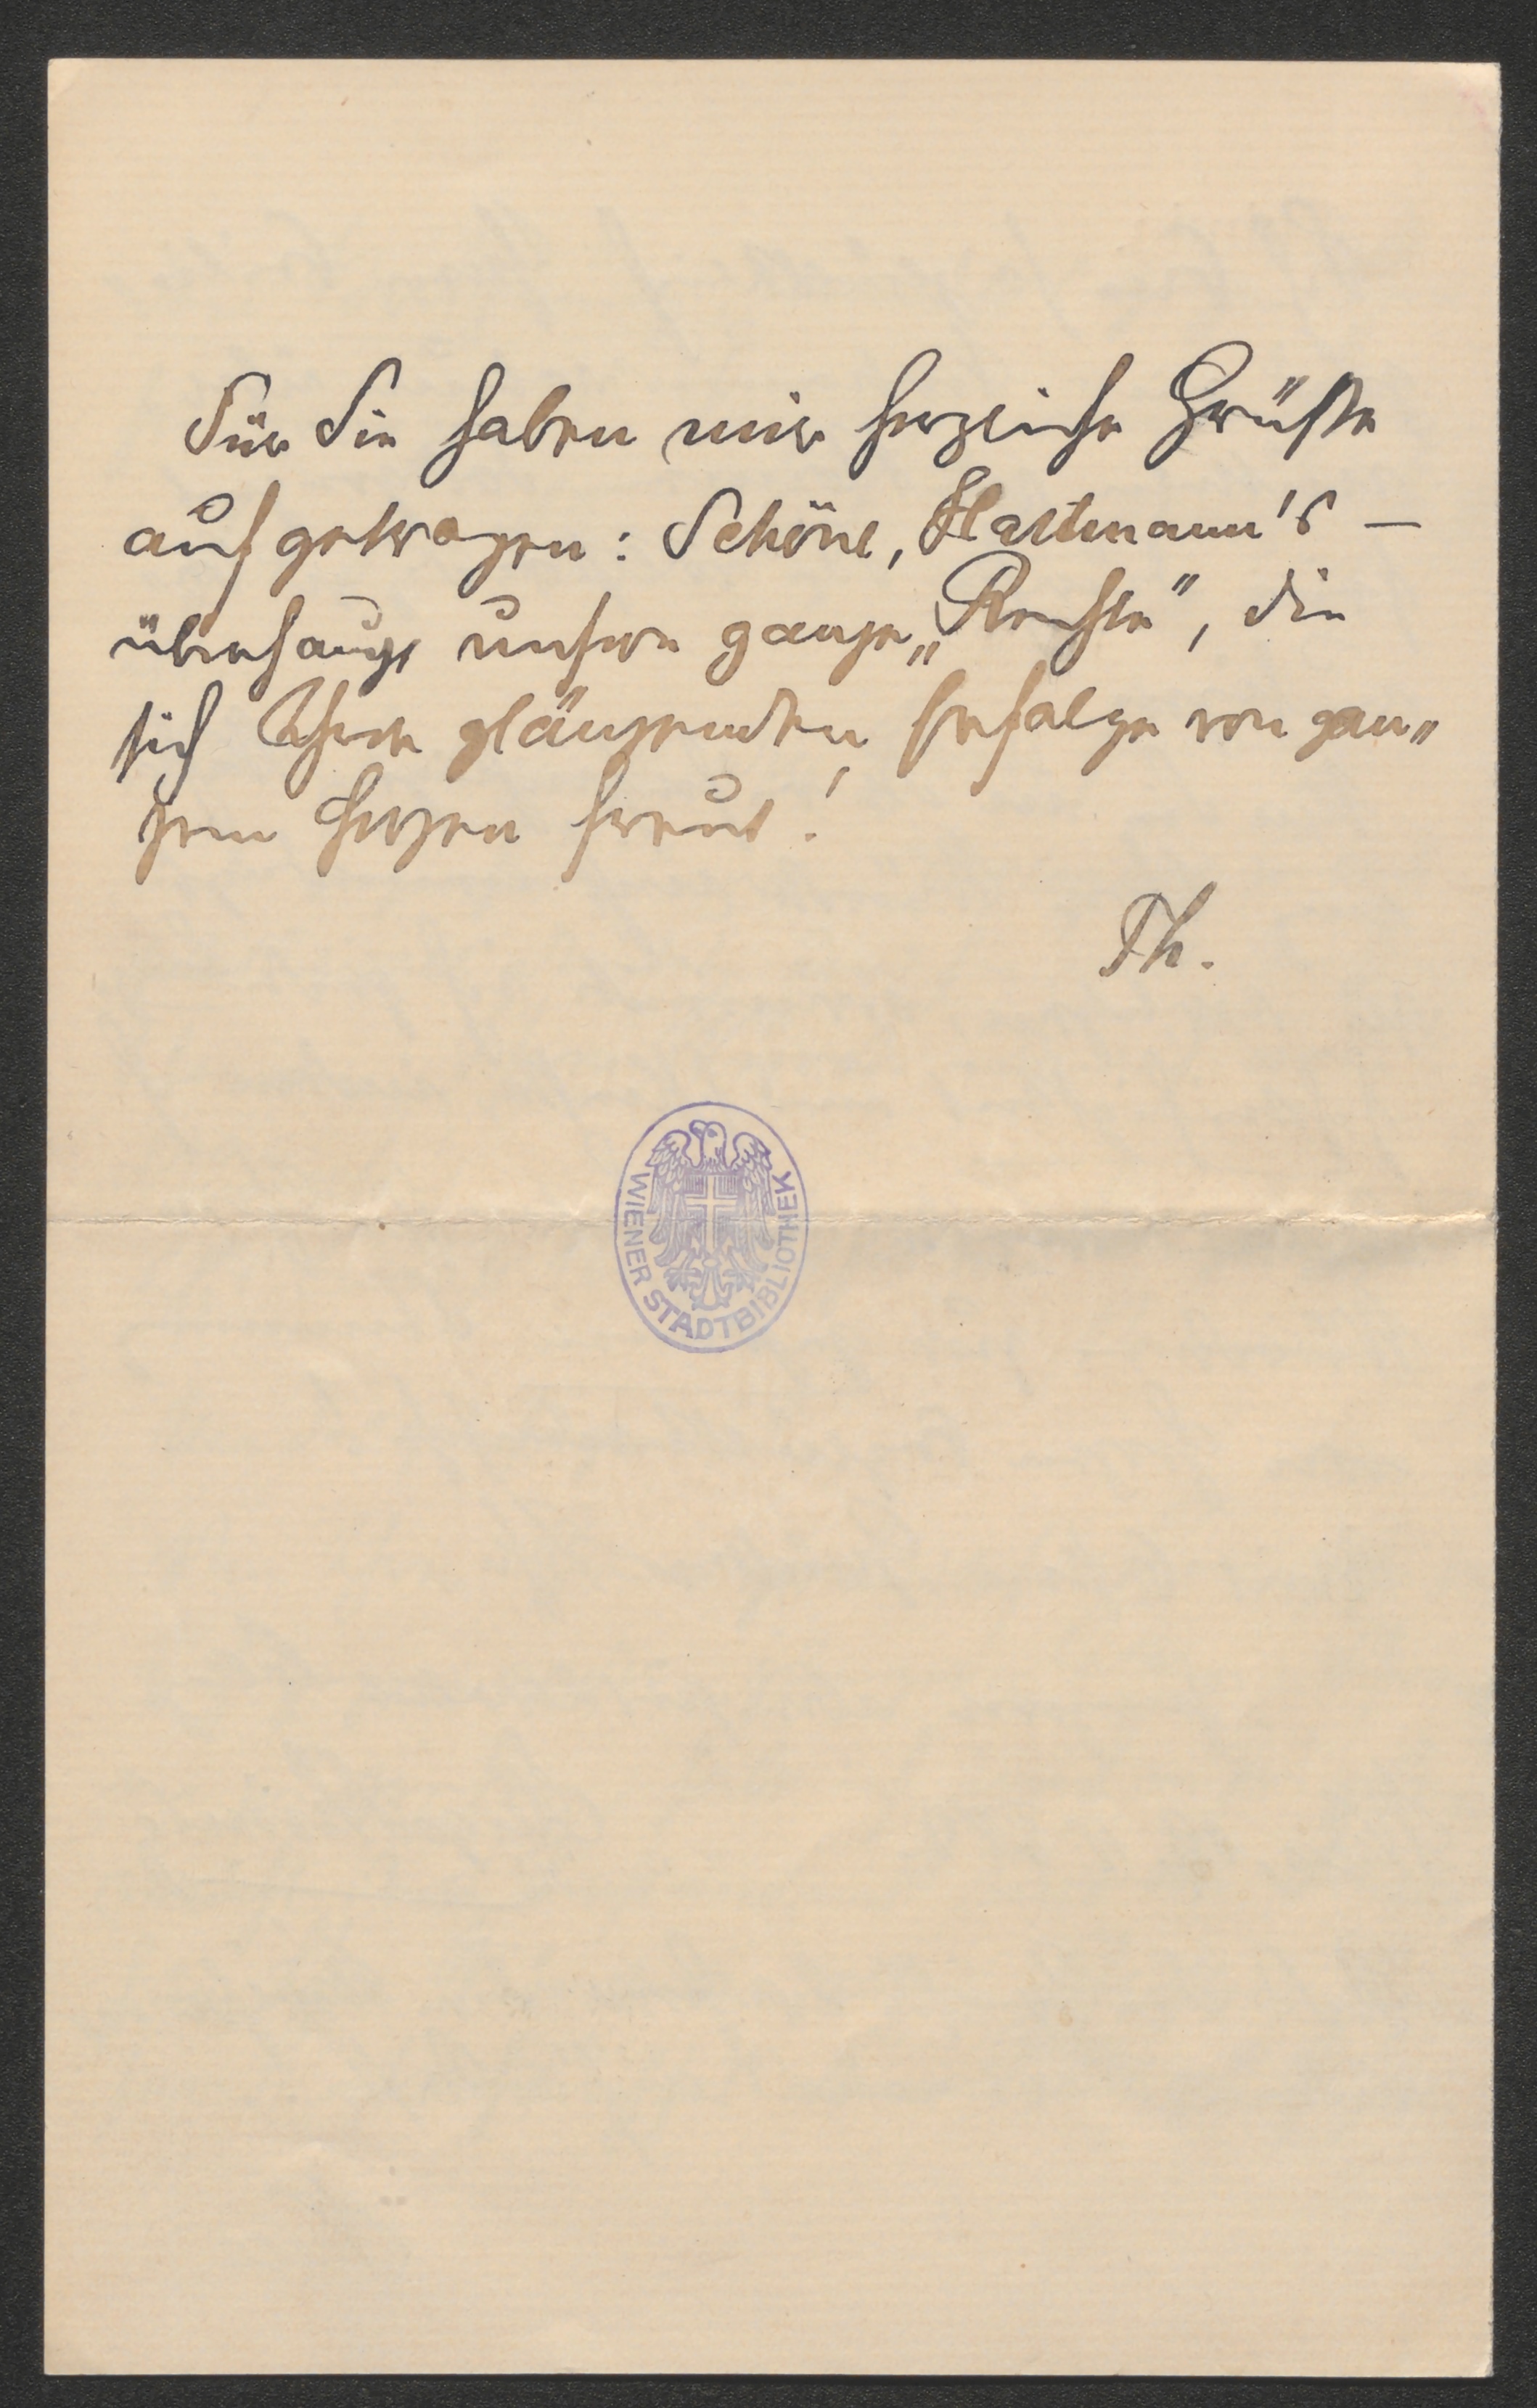 Für Sie haben mir herzliche Grüße
aufgetragen: Schöne, Hartmann's —
überhaupt unsere ganze „Rechte", die
sich Ihrer glänzenden Erfolge von gan„
zem Herzen freut!
Th.
WIENER STADTBIBLIOTHEK